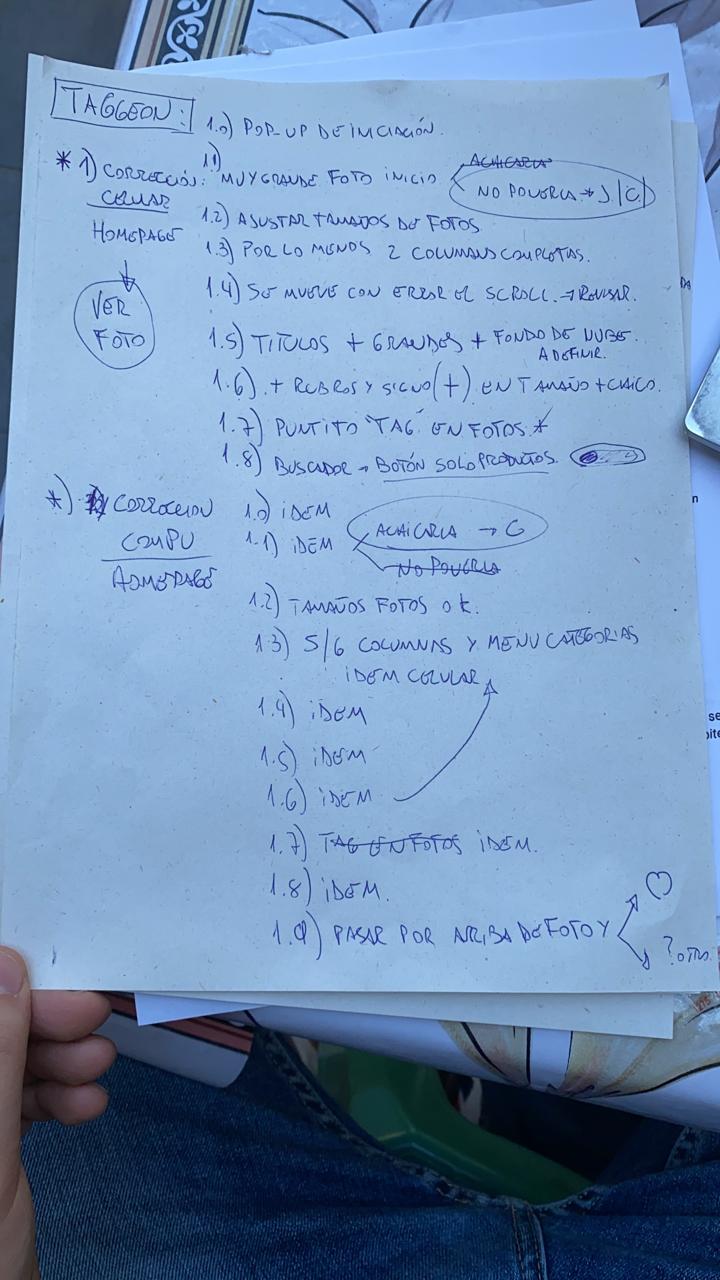 TAGGEON:
1.0) POP-UP DE INICIACIÓN.
* 1) CORRECCIÓN: CELULAR
HOMEPAGE
VER FOTO
1.1) MUY GRANDE FOTO INICIO
ACHICARLA
NO PONERLA →
1.2) AJUSTAR TAMAÑOS DE FOTOS
1.3) POR LO MENOS 2 COLUMNAS COMPLETAS.
1.4) SE MUEVE CON ERROR EL SCROLL. → REVISAR.
1.5) TITULOS + GRANDES + FONDO DE NUBE.
A DEFINIR.
1.6) + RUBROS Y SIGNO (+) EN TAMAÑO + CHICO.
1.7) PUNTITO "TAG" EN FOTOS *
1.8) BUSCADOR → BOTÓN SOLO PRODUCTOS.
*) CORRECCION
COMPU
HOMEPAGE
1.0) IDEM
1.1) IDEM
ACHICARLA → C
NO PONERLA
1.2) TAMAÑOS FOTOS OK.
1.3) 5/6 COLUMNAS Y MENU CATEGORIAS
IDEM CELULAR
1.4) IDEM
1.5) IDEM
1.6) IDEM
1.7) TAG EN FOTOS IDEM.
1.8) IDEM.
1.9) PASAR POR ARRIBA DE FOTO Y
♡